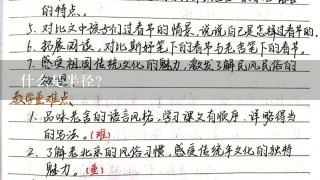 的特点。
5. 对比文中孩子们过春节的情景，说说自己是怎样过春节的。
6. 拓展阅读，对比斯妤笔下的春节与老舍笔下的春节。
7. 感受祖国传统文化的魅力，激发了解民风民俗的
什么是半径?
教学重难点
1. 品味老舍的语言风格，学习课文有顺序、详略得当
的写法。(难)
2. 了解老北京的风俗习惯，感受传统年文化的独特
魅力。(重)